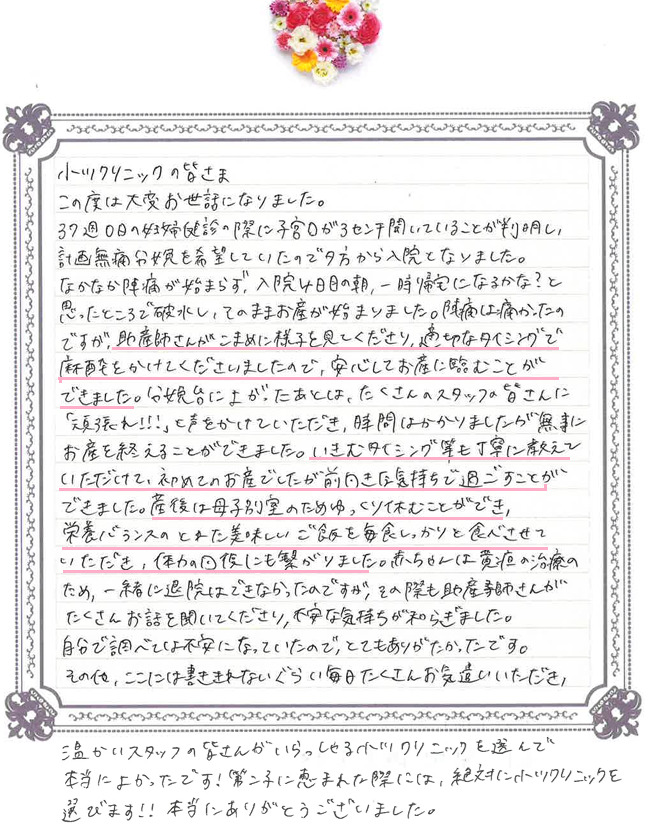 小川クリニックの皆さま
この度は大変お世話になりました。
37週0日の妊婦健診の際に子宮口が3センチ開いていることが判明し、
計画無痛分娩を希望していたので夕方から入院となりました。
なかなか陣痛が始まらず、入院4日目の朝、一時帰宅になるかな?と
思ったところで破水し、そのままお産が始まりました。陣痛は痛かったの
ですが、助産師さんがこまめに様子を見てくださり、適切なタイミングで
麻酔をかけてくださいましたので、安心してお産に臨むことが
できました。分娩台に上がったあとは、たくさんのスタッフの皆さんに
「頑張れ!!!」と声をかけていただき、時間はかかりましたが無事に
お産を終えることができました。いきむタイミング等も丁寧に教えて
いただけて、初めてのお産でしたが前向きな気持ちで過ごすことが
できました。産後は母子別室のためゆっくり休むことができ、
栄養バランスのとれた美味しいご飯を毎食しっかりと食べさせて
いただき、体力の回復にも繋がりました。赤ちゃんは黄疸の治療の
ため、一緒に退院はできなかったのですが、その際も助産師さんが
たくさんお話を聞いてくださり、不安な気持ちが和らぎました。
自分で調べては不安になっていたので、とてもありがたかったです。
その他、ここには書ききれないぐらい毎日たくさんお気遣いいただき、
温かいスタッフの皆さんがいらっしゃる小川クリニックを選んで
本当によかったです!第二子に恵まれた際には、絶対に小川クリニックを
選びます!!本当にありがとうございました。